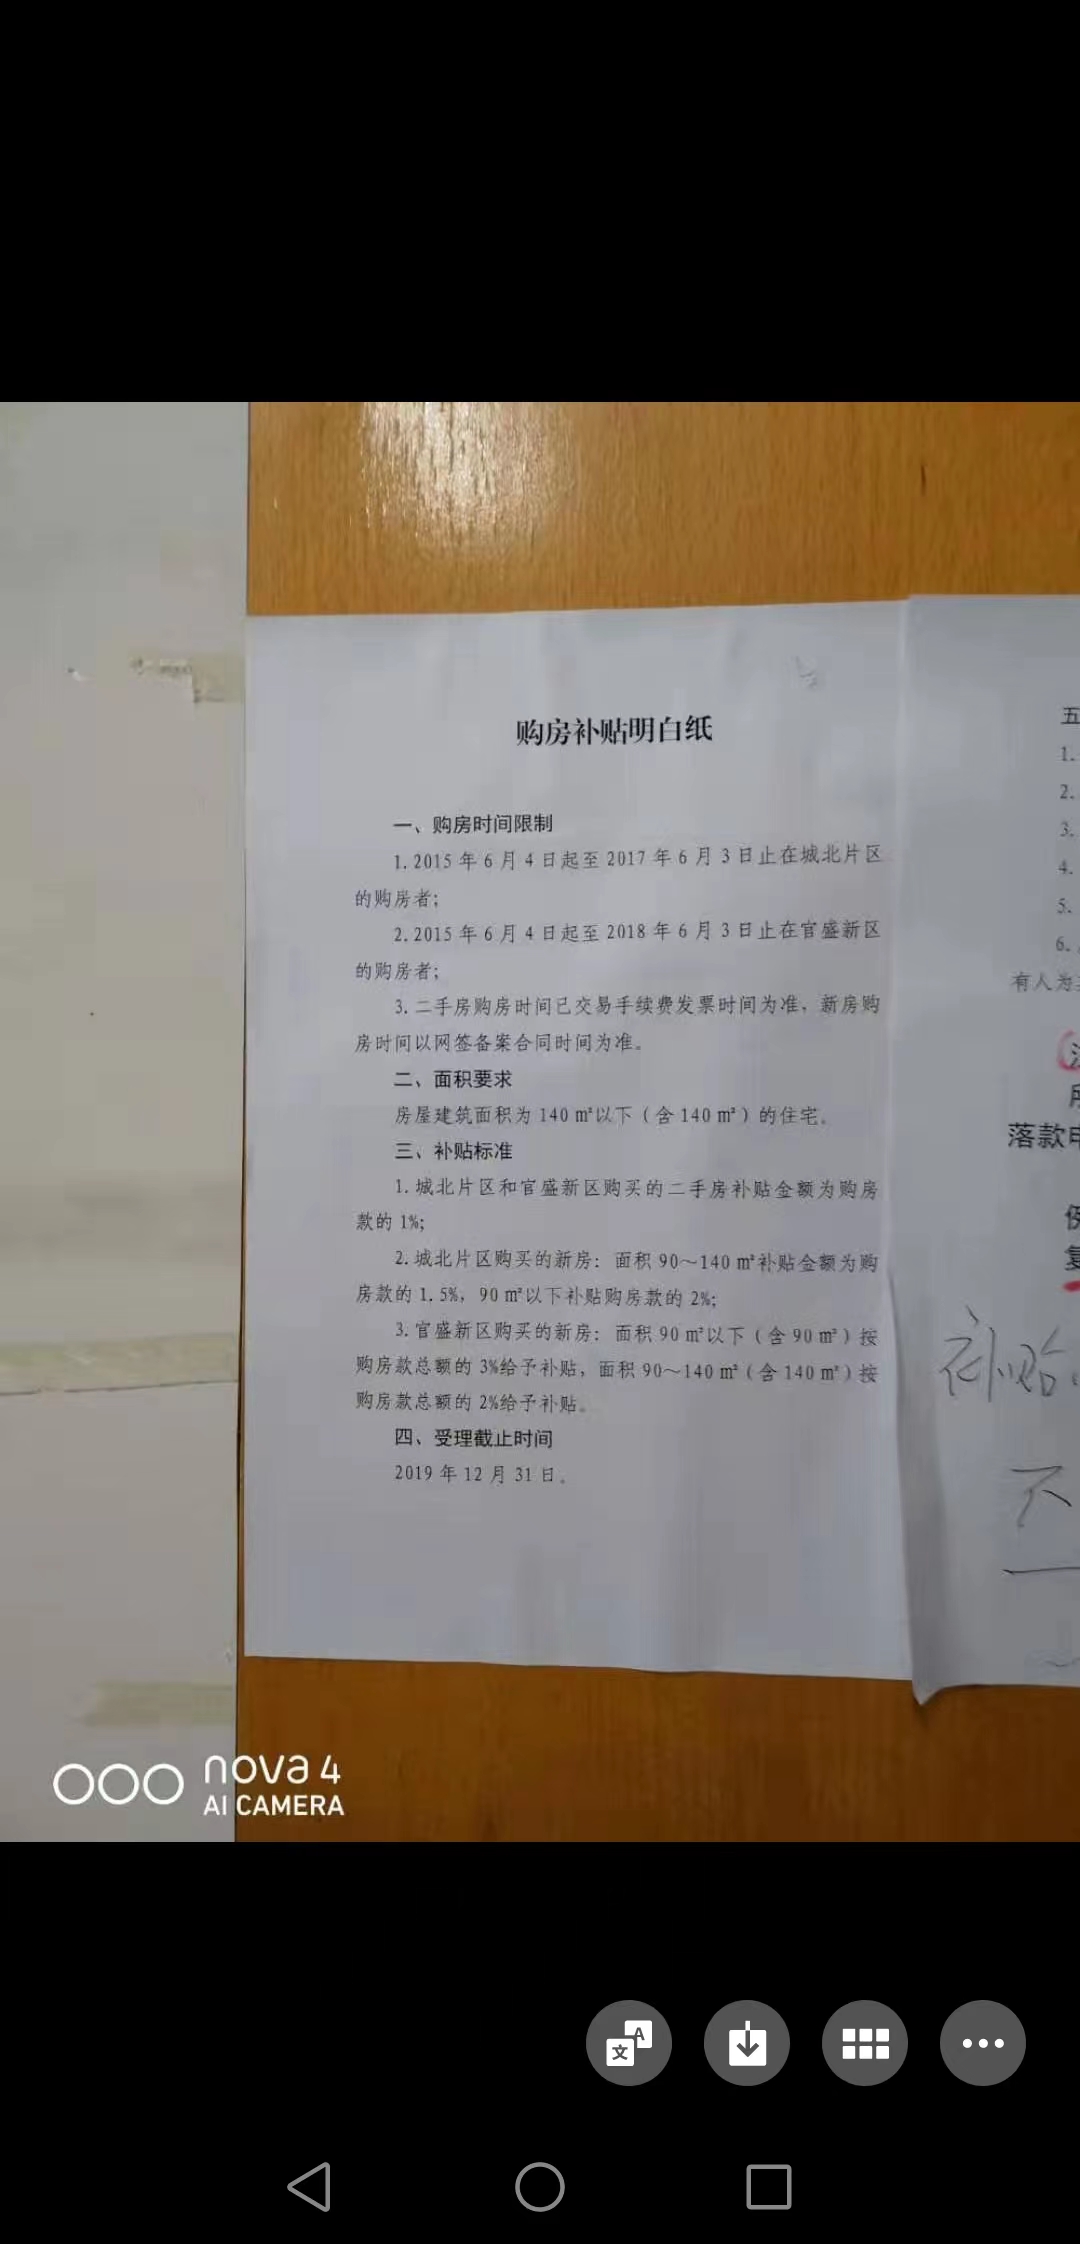 购房补贴明白纸
一、购房时间限制
1.2015年6月4日起至2017年6月3日止在城北片区
的购房者;
2.2015年6月4日起至2018年6月3日止在官盛新区
的购房者;
3.二手房购房时间已交易手续费发票时间为准，新房购
房时间以网签备案合同时间为准。
二、面积要求
房屋建筑面积为140㎡以下（含140㎡）的住宅。
三、补贴标准
1.城北片区和官盛新区购买的二手房补贴金额为购房
款的1%;
2.城北片区购买的新房：面积90～140㎡补贴金额为购
房款的1.5%，90㎡以下补贴购房款的2%;
3.官盛新区购买的新房：面积90㎡以下（含90㎡）按
购房款总额的3%给予补贴，面积90～140㎡（含140㎡）按
购房款总额的2%给予补贴。
四、受理截止时间
2019年12月31日。
五
1.
2.
3.
4.
5.
6.
有人为
落款
补贴
不
nova 4
AI CAMERA
文 A